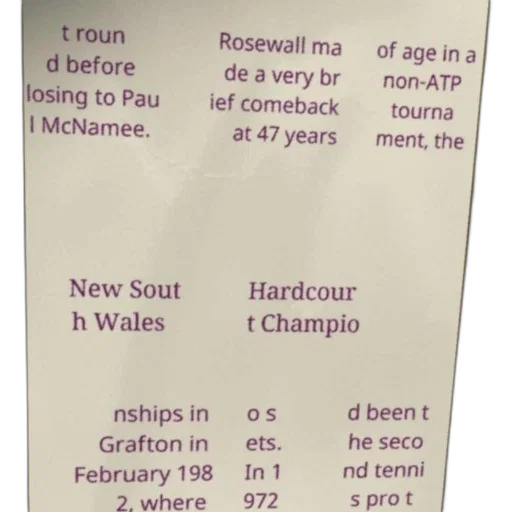 t roun
d before
losing to Pau
l McNamee.
Rosewall ma
de a very br
ief comeback
at 47 years
of age in a
non-ATP
tourna
ment, the
New Sout
h Wales
Hardcour
t Champio
nships in
Grafton in
February 198
2, where
o s
ets.
In 1
972
d been t
he seco
nd tenni
s pro t